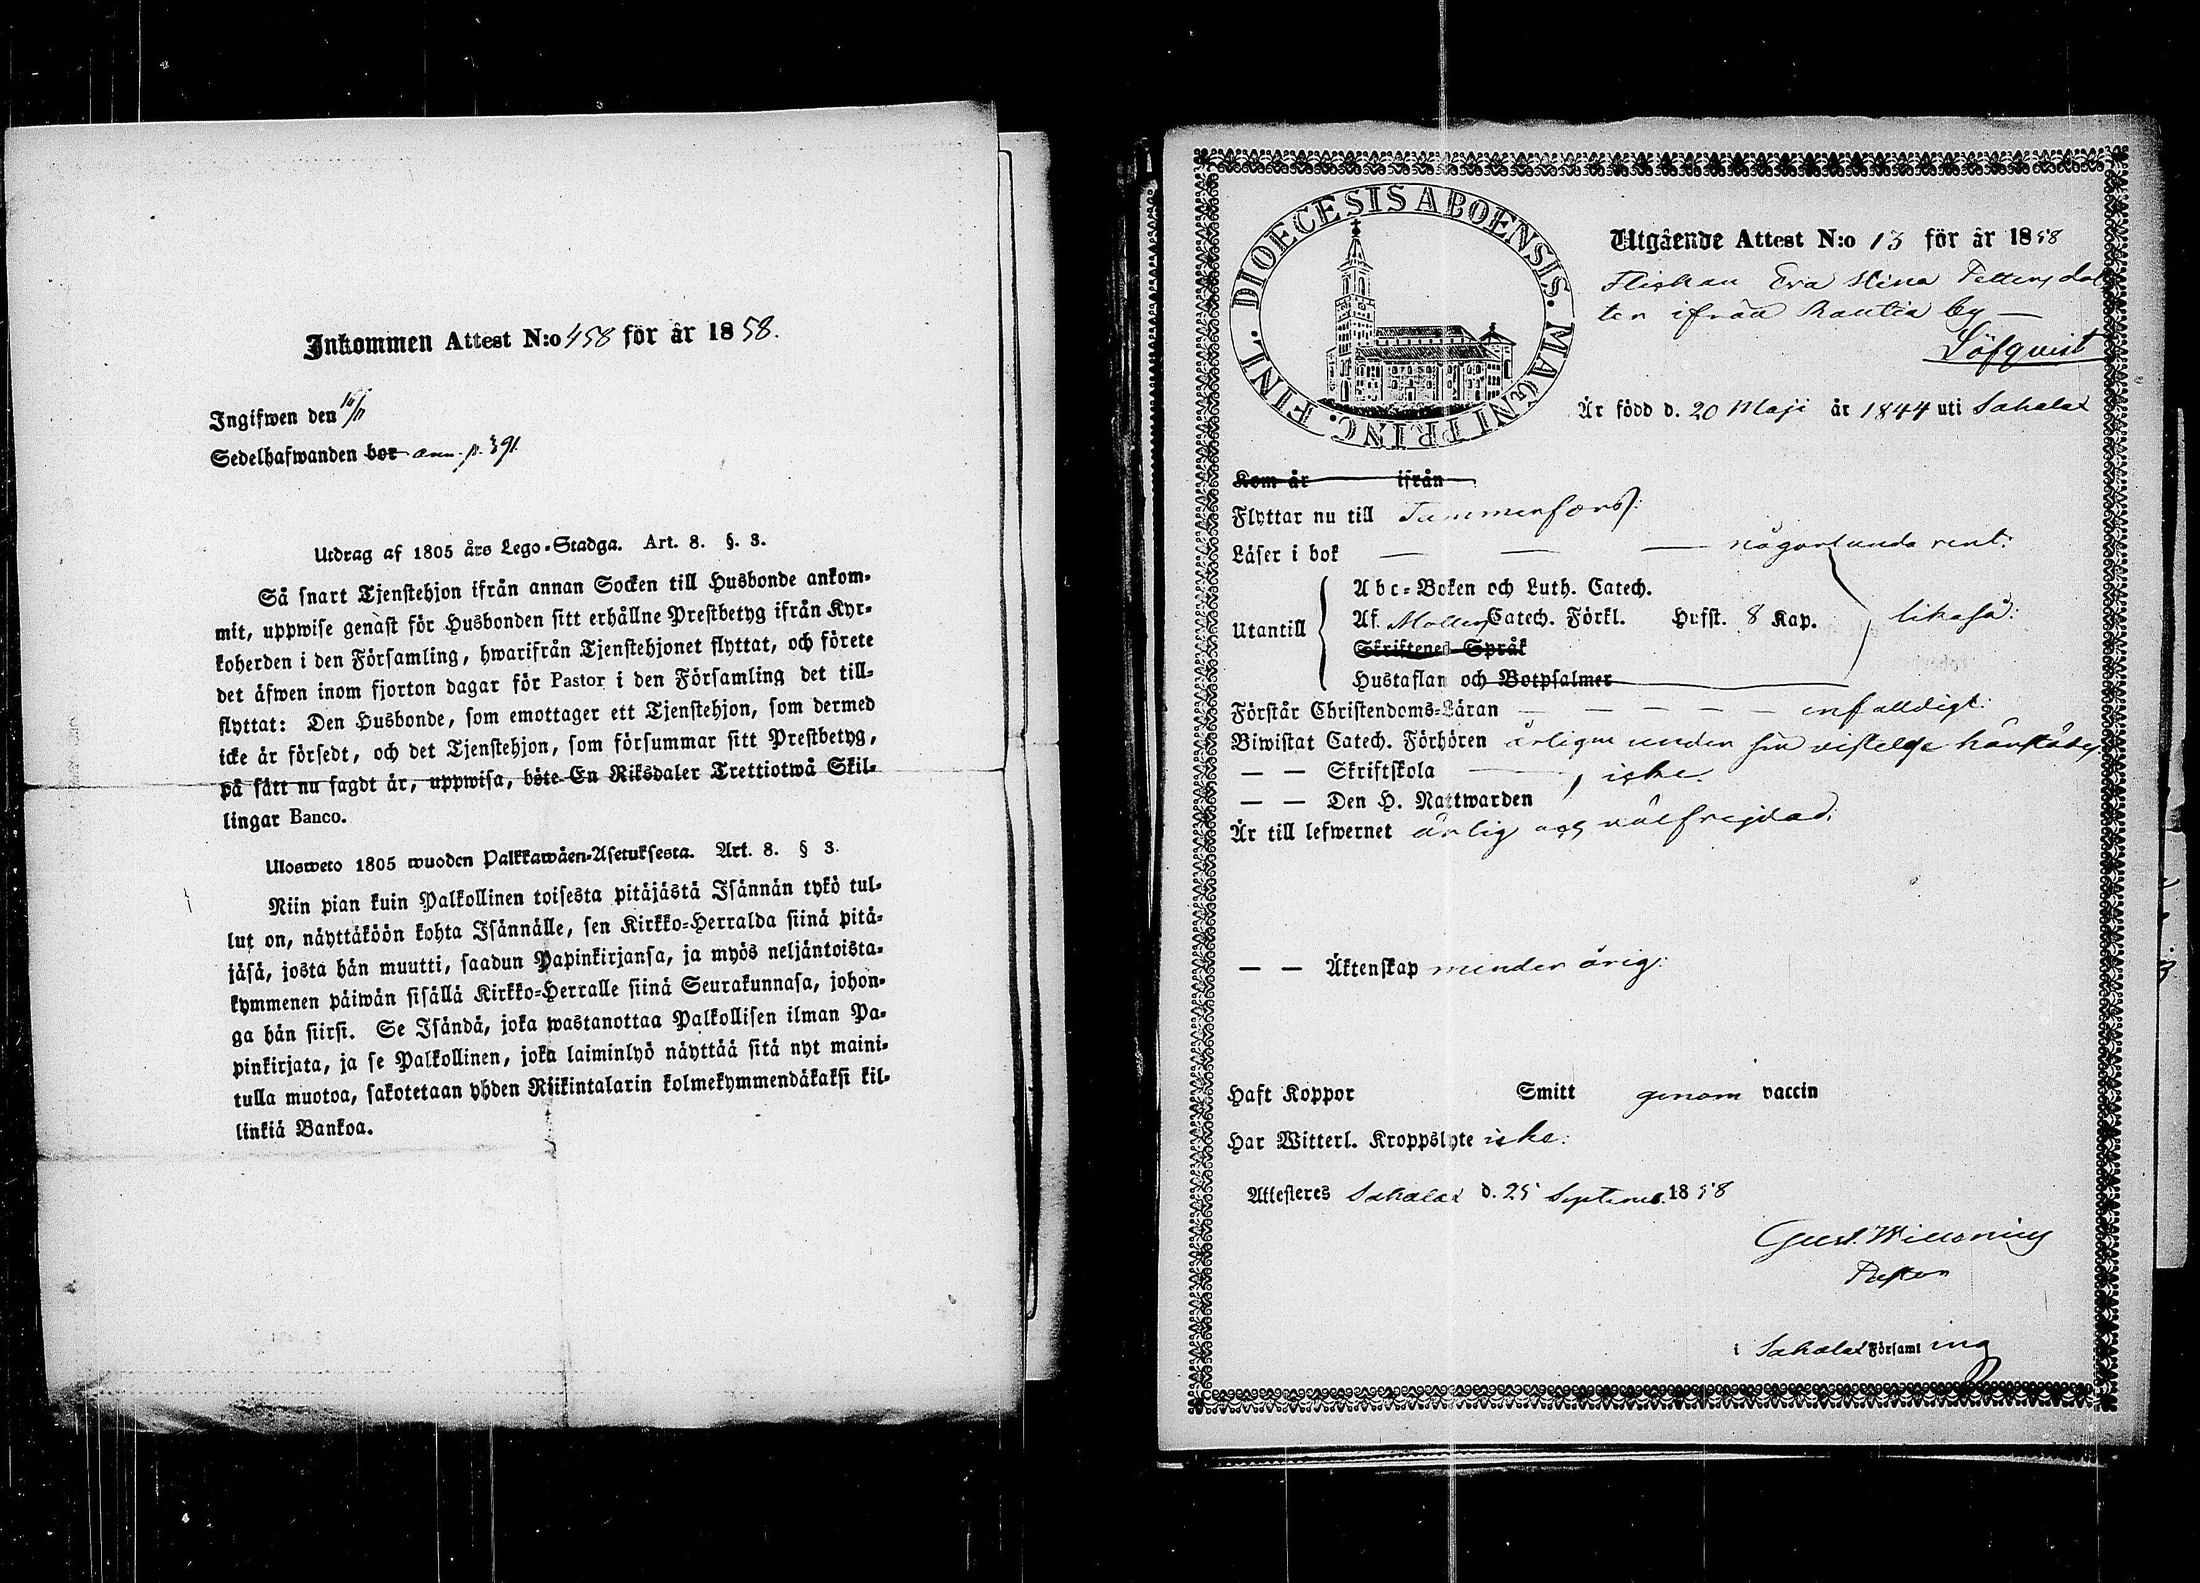 Inkommen Attest N:o 458 för år 1858.
Ingifwen den 16/11
Sedelhafwanden bor ann. p. 391
Utdrag af 1805 års Lego-Stadga. Art. 8. §. 3.
Så snart Tjenstehjon ifrån annan Socken till Husbonde ankom-
mit, uppwise genast för Husbonden sitt erhållne Prestbetyg ifrån Kyr-
koherden i den Församling, hwarifrån Tjenstehjonet flyttat, och förete
det äfwen inom fjorton dagar för Pastor i den Församling det till-
flyttat: Den Husbonde, som emottager ett Tjenstehjon, som dermed
icke är försedt, och det Tjenstehjon, som försummar sitt Prestbetyg,
på sätt nu sagdt är, uppwisa, böte En Riksdaler Trettiotwå Skil-
lingar Banco.
Ulosweto 1805 wuoden Palkkawäen-Asetuksesta. Art. 8. § 3.
Niin pian kuin Palkollinen toisesta pitäjästä Isännän tykö tul-
lut on, näyttäköön kohta Isännälle, sen Kirkko-Herralda siinä pitä-
jäsä, josta hän muutti, saadun Papinkirjansa, ja myös neljäntoista-
kymmenen päiwän sisällä Kirkko-Herralle siinä Seurakunnasa, johon-
ga hän siirsi. Se Isändä, joka wastanottaa Palkollisen ilman Pa-
pinkirjata, ja se Palkollinen, joka laiminlyö näyttää sitä nyt maini-
tulla muotoa, sakotetaan yhden Riikintalarin kolmekymmendäkaksi kil-
linkiä Bankoa.
DIOECESIS ABOENSIS. MAGNI PRINC. FINL.
Utgående Attest N:o 13 för år 1858
Flickan Eva Stina Pettersdot
ter ifrån Rautia by
Löfquist
Är född d. 20 Maji år 1844 uti Sahalax
Kom år ifrån
Flyttar nu till Tammerfors.
Läser i bok någorlunda rent.
Abc-Boken och Luth. Catech.
Utantill Af Mollers Catech. Förkl. Hufst. 8 Kap. likaså.
Skriftenes Språk
Hustaflan och Botpsalmer
Förstår Christendoms-Läran enfalldigt.
Biwistat Catech. Förhören årligen under sin vistelse härstädes
— — Skriftskola icke
— — Den H. Nattwarden
Är till lefwernet ärlig och välfrejdad.
— — Äktenskap minderårig.
Haft Koppor Smitt genom vaccin
Har Witterl. Kroppslyte icke.
Attesteras Sahalax d. 25 September 1858
Gust.
Pastor
i Sahalax Församling